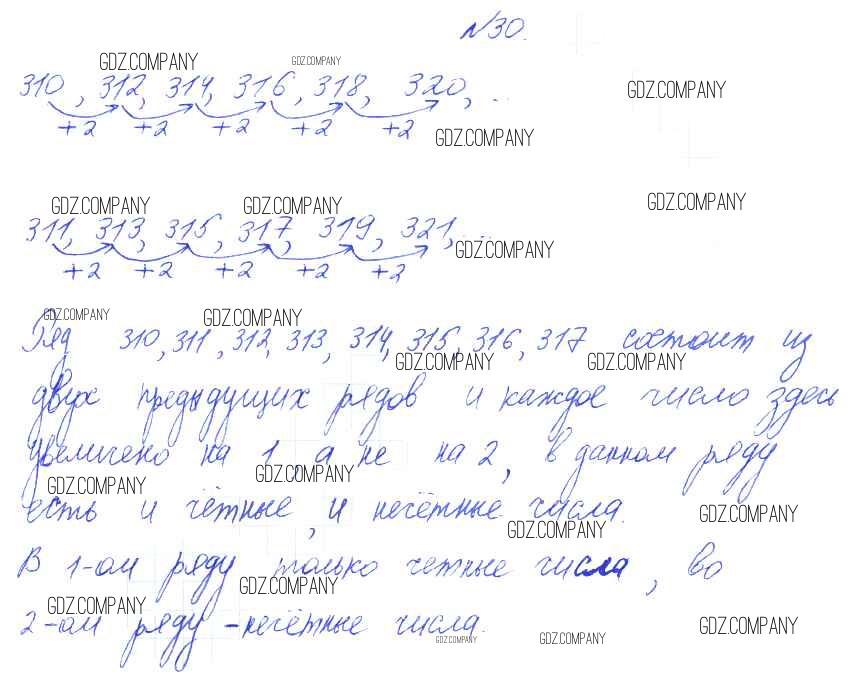 №30.
GDZ.COMPANY GDZ.COMPANY
310, 312, 314, 316, 318, 320, ...
GDZ.COMPANY
+2 +2 +2 +2 +2
GDZ.COMPANY
GDZ.COMPANY GDZ.COMPANY GDZ.COMPANY
311, 313, 315, 317, 319, 321, ...
GDZ.COMPANY
+2 +2 +2 +2 +2
GDZ.COMPANY GDZ.COMPANY
Ряд 310, 311, 312, 313, 314, 315, 316, 317 состоит из
GDZ.COMPANY GDZ.COMPANY
двух предыдущих рядов и каждое число здесь
увеличено на 1, а не на 2, в данном ряду
GDZ.COMPANY GDZ.COMPANY
есть и чётные, и нечётные числа.
GDZ.COMPANY GDZ.COMPANY
В 1-ом ряду только четные числа, во
GDZ.COMPANY GDZ.COMPANY
2-ом ряду - нечётные числа.
GDZ.COMPANY GDZ.COMPANY GDZ.COMPANY